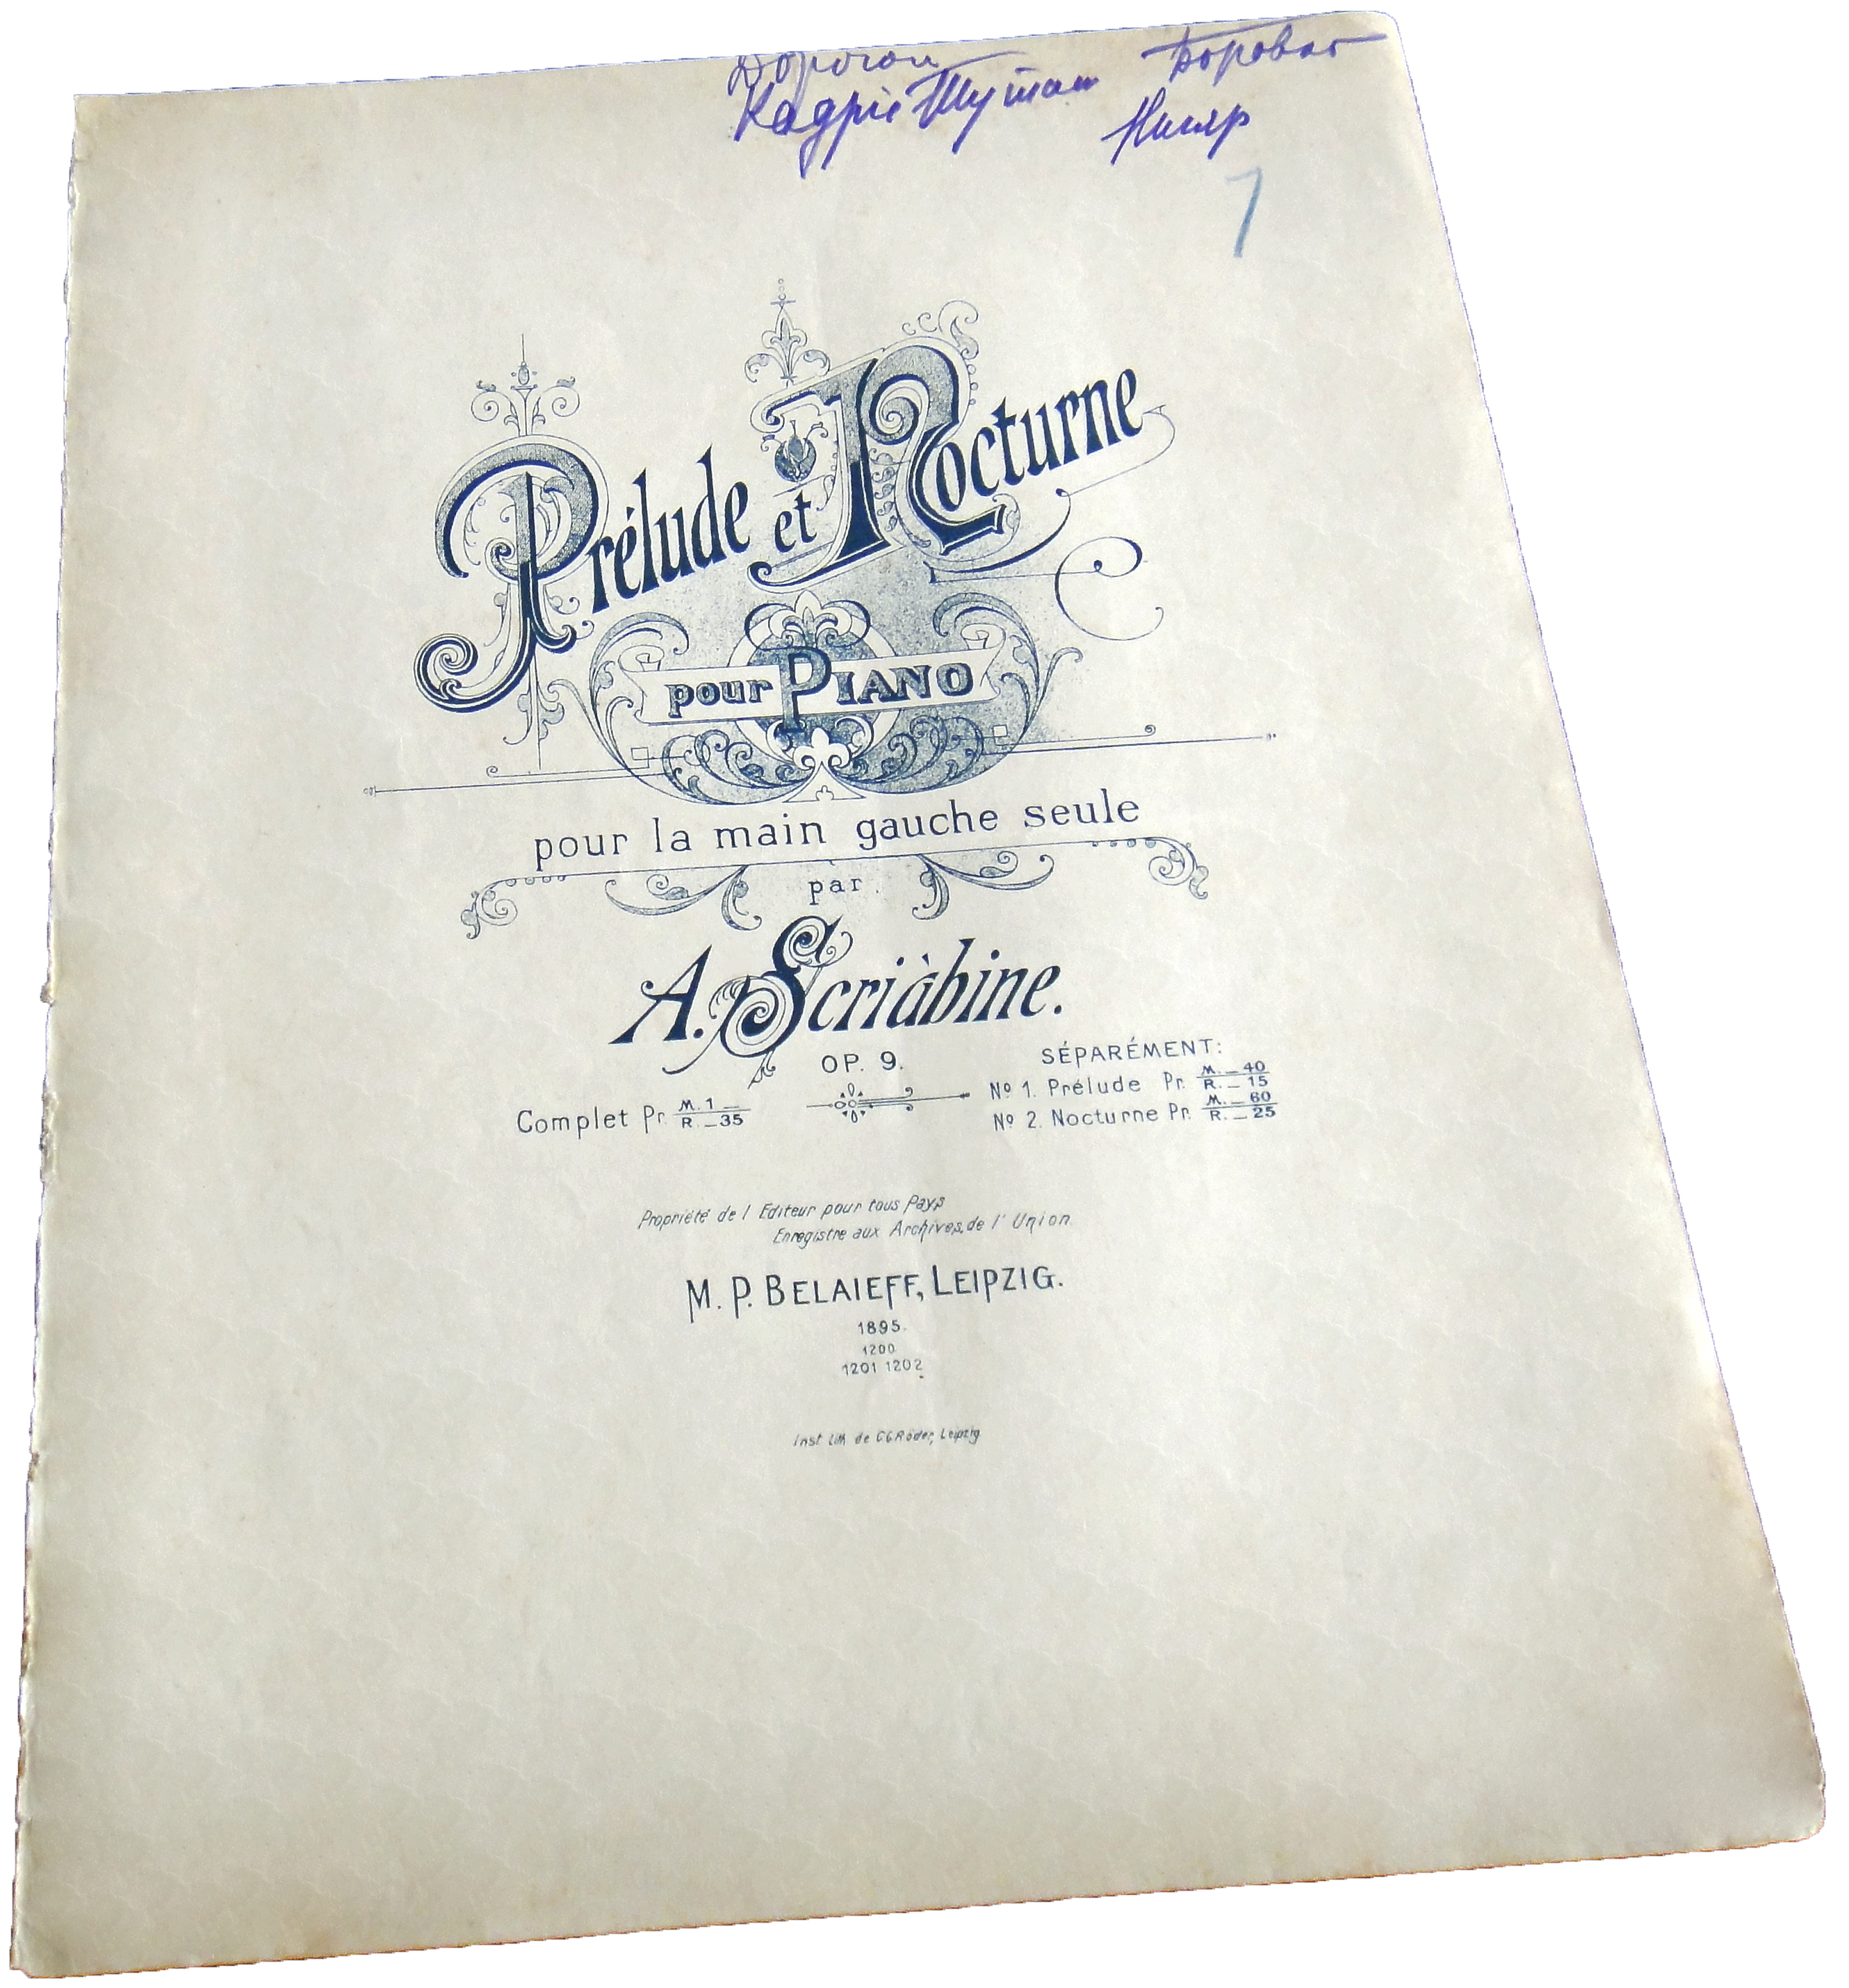 7
Prélude et Nocturne
pour PIANO
pour la main gauche seule
par
A. Scriàbine.
OP. 9.
SÉPARÉMENT:
Complet Pr. M. 1 — R. — 35
Nº 1. Prélude Pr. M. — 40 R. — 15
Nº 2. Nocturne Pr. M. — 60 R. — 25
Propriété de l'Editeur pour tous Pays
Enregistre aux Archives de l'Union.
M. P. BELAIEFF, LEIPZIG.
1895.
1200
1201 1202
Inst Lith de C G Röder, Leipzig